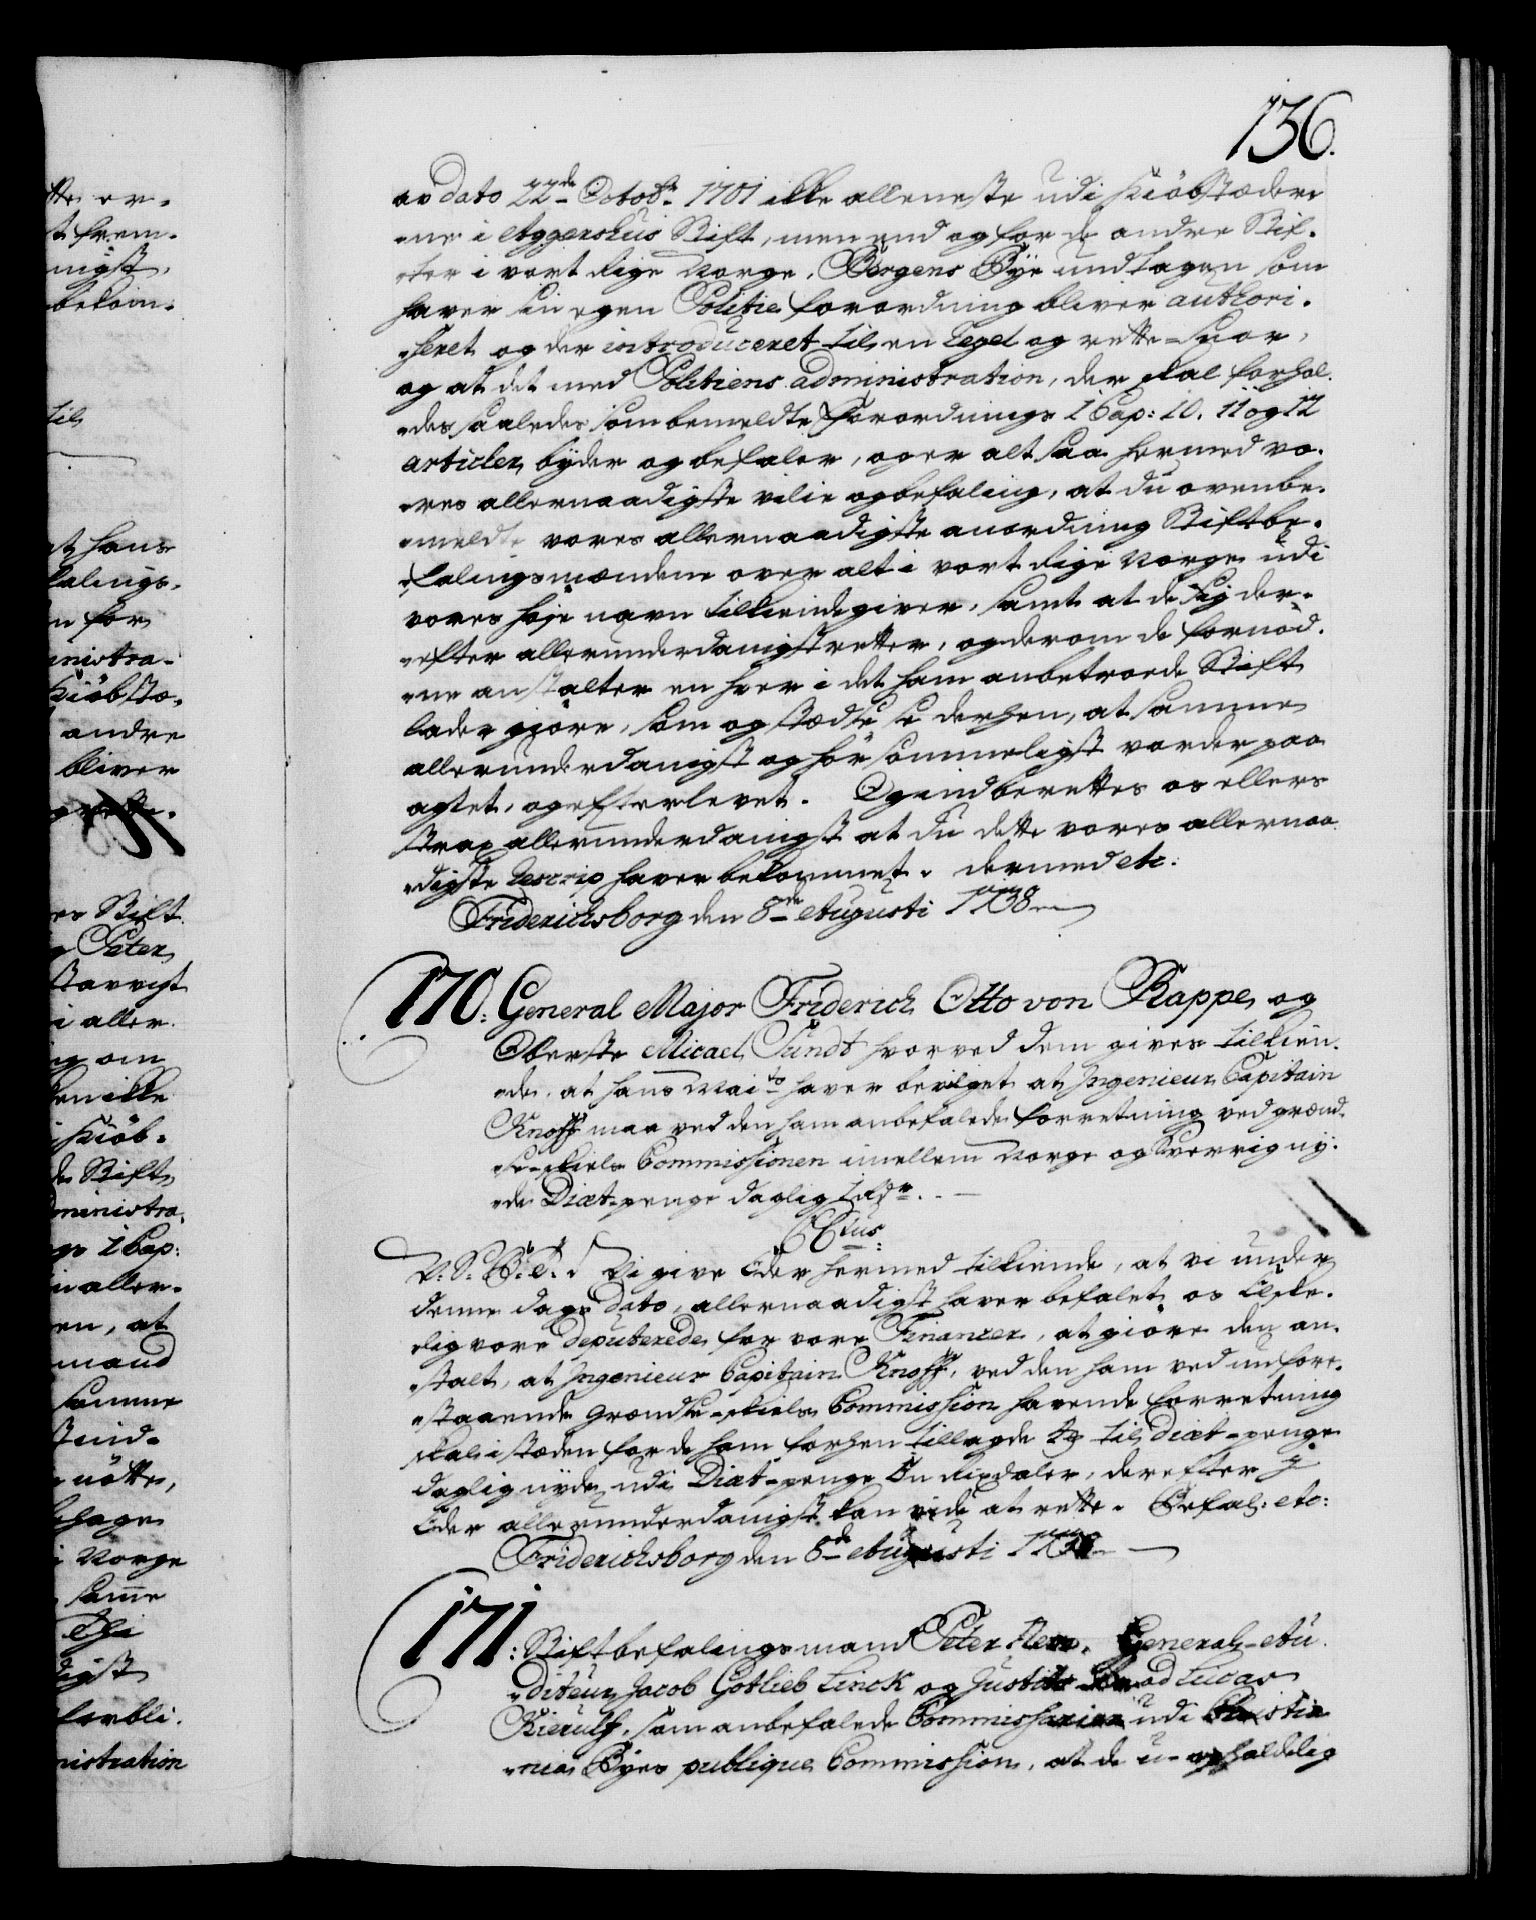 136.
av dato 22de Octobr 1701 ikke alleneste udi Kiöbstæder
ne i Aggershuus Stift, men end og for de andre Stif-
ter i vort Rige Norge, Bergens Bÿe undtagen som
haver sin egen Politie forordning bliver authori-
seret og der introduceret til en Regel og rette-snor,
og at det med Politiens administration, der skal forhol-
des saaledes som bemeldte Forordnings 1 Cap: 10. 11 og 12
articler, bÿder og befaler, og er alt saa hermed vo-
res allernaadigste vilie og befaling, at du ovenbe-
meldte vores allernaadigste anordning Stiftbe-
falingsmændene over alt i vort Rige Norge udi
vores höje navn tilkiendegiver, samt at de sig der-
efter allerunderdanigst retter, og derom de fornöd-
ne anstalter en hver i det ham anbetroede Stift
lader giöre, som og stedse se derhen, at samme
allerunderdanigst og hörsommeligst vorder paa
agtet, og efterlevet. Og indberettes os ellers
strax allerunderdanigst at du dette vores allernaa-
digste Rescrip haver bekommet. dermed etc:
Friderichsborg den 8de Augusti 1738
170: General Major Friderich Otto von Rappe, og
Oberste Micael Sundt hvorved dem gives tilkien-
de, at hans Maitz haver bevilget at Ingenieur Capitain
Knoff maa ved den ham anbefalede forretning ved grænd-
se-skiels Commissionen imellem Norge og Sverrig nÿ-
de Diæt-penge daglig 1 Rdr.
C 6tus.
V: S: G: T: Vi give Eder hermed tilkiende, at vi under
denne dags dato, allernaadigst haver befalet os Elske-
lig vore deputerede for vore Financer, at giöre den an-
stalt, at Ingenieur Capitain Knoff, ved den ham ved nu fore-
staaende Grændse-skiels Commission havende forretning
skal i stæden for de ham forhen tillagde til Diæt-penge
daglig nÿde, udi Diæt-penge En Rixdaler, derefter I
Eder allerunderdanigst kan vide at rette. Befal: etc:
Friderichsborg den 8de Augusti 1738
171: Stiftbefalingsmand Peter General-Au-
diteur, Jacob Gotlieb Linck og Justits Lucas
Kierulf, som anbefalede Commissarier udi Christia
nia Bÿes publique Commission, at de u-opholdelig
tte er-
t frem-
nigst,
bekom-
til
at hans
falings-
n for
inistra-
Kiöbstæ-
andre
bliver
es Stift
Peter
i aller
ng om
en ikke
Kiöb-
de Stift
ministra-
gs 1 Cap:
n aller-
en, at
mand
samme
nötte,
i Norge
samme
digst
forbli-
nistration